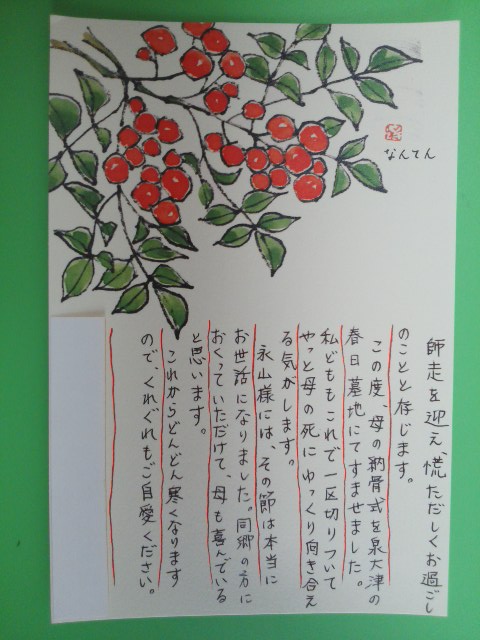 なんてん
師走を迎え、慌ただしくお過ごし
のことと存じます。
この度、母の納骨式を泉大津の
春日墓地にてすませました。
私どももこれで一区切りついて
やっと母の死にゆっくり向き合え
る気がします。
永山様には、その節は本当に
お世話になりました。同郷の方に
おくっていただけて、母も喜んでいる
と思います。
これからどんどん寒くなります
ので、くれぐれもご自愛ください。